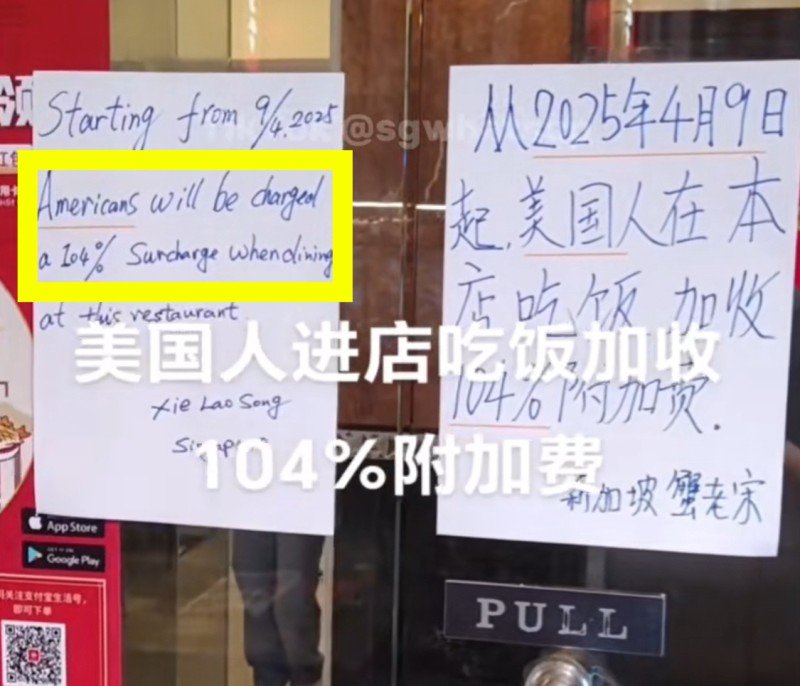 Starting from 9/4.2025
Americans will be charged
a 104% Surcharge when dining
at this restaurant
Xie Lao Song
Singapore
从2025年4月9日
起,美国人在本
店吃饭加收
104%附加费.
新加坡 蟹老宋
美国人进店吃饭加收
104%附加费
App Store
GET IT ON
Google Play
码关注支付宝生活号,
即可下单
PULL